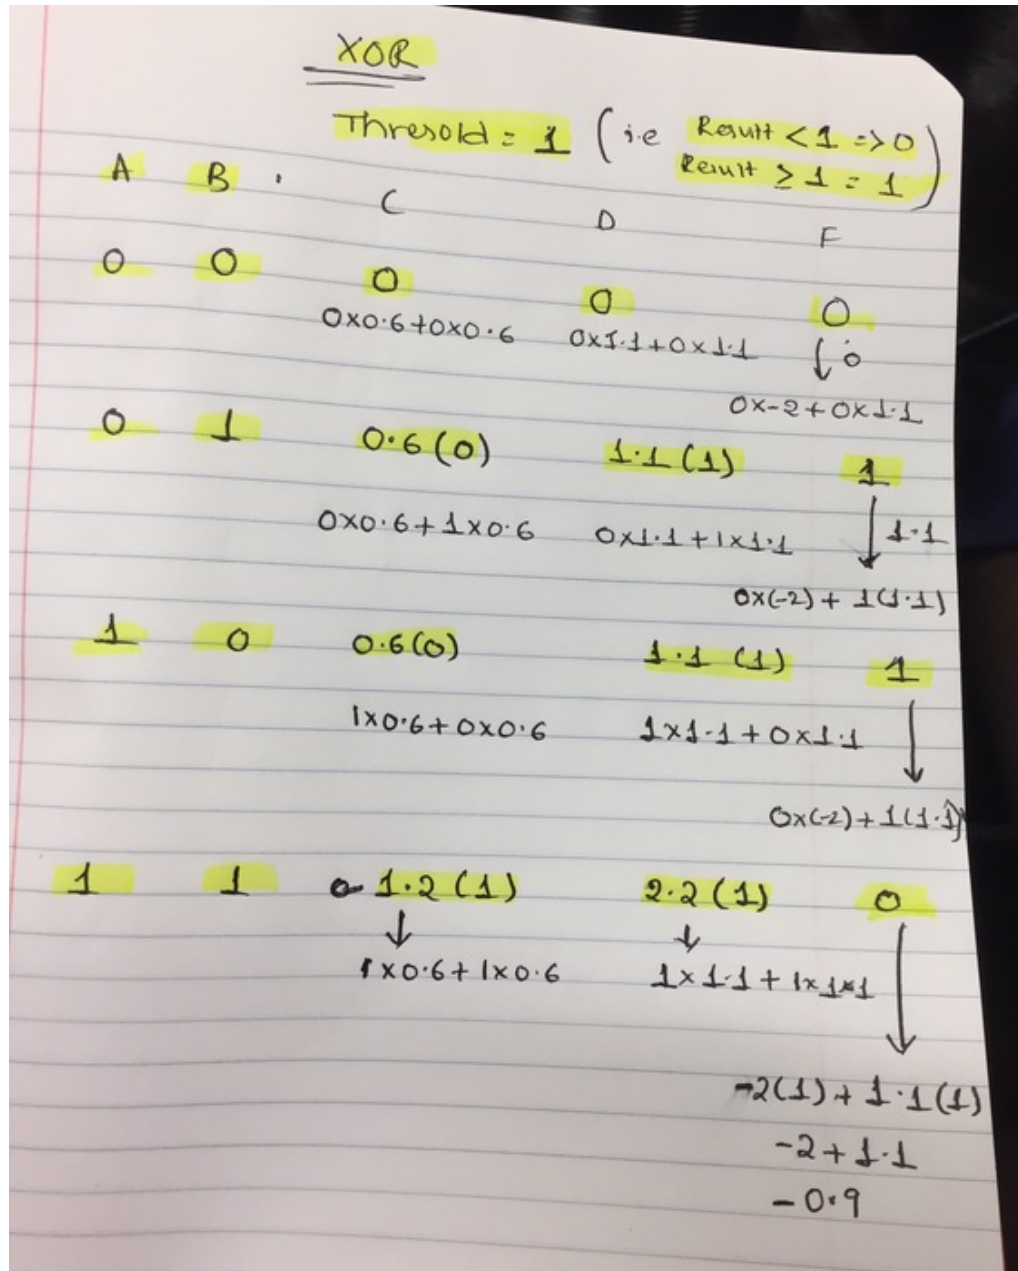 XOR
Thresold = 1 (i.e Result < 1 => 0
Result ≥ 1 = 1)
A B . C D F
0 0 0 0 0
0x0.6+0x0.6 0x1.1+0x1.1 ↓ 0
0x-2+0x1.1
0 1 0.6(0) 1.1(1) 1
0x0.6+1x0.6 0x1.1+1x1.1 ↓ 1.1
0x(-2)+1(1.1)
1 0 0.6(0) 1.1 (1) 1
1x0.6+0x0.6 1x1.1+0x1.1 ↓
0x(-2)+1(1.1)
1 1 1.2(1) 2.2(1) 0
↓ ↓ ↓
1x0.6+1x0.6 1x1.1+1x1.1
-2(1)+1.1(1)
-2+1.1
-0.9